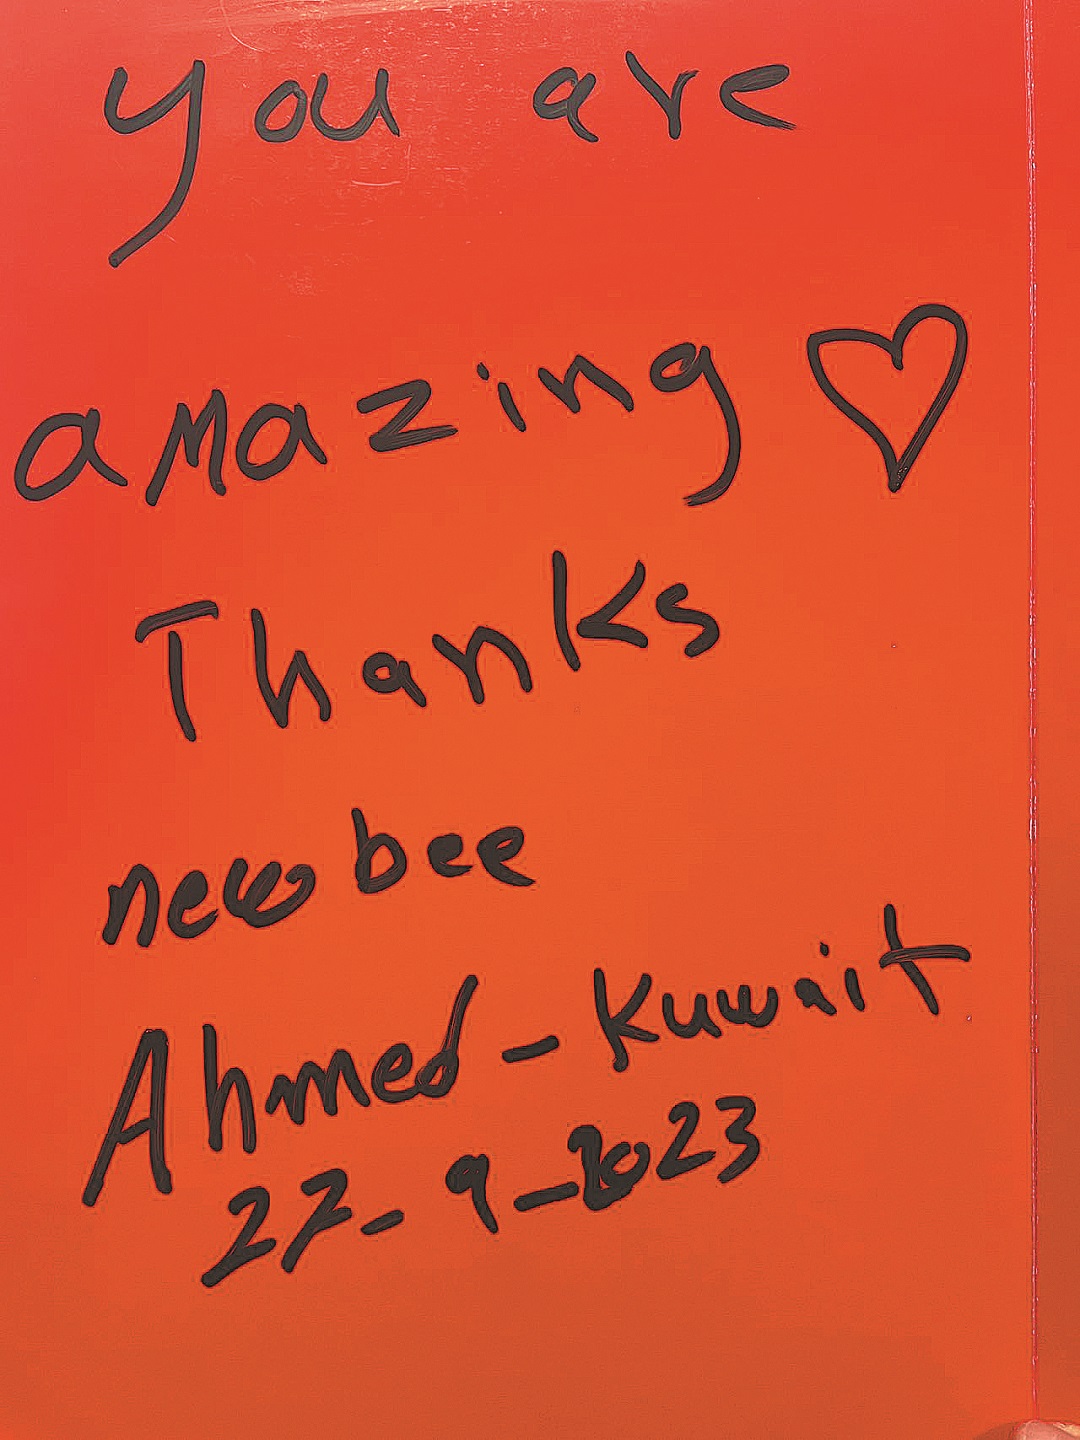 you are
amazing ♡
Thanks
new bee
Ahmed - Kuwait
27-9-2023